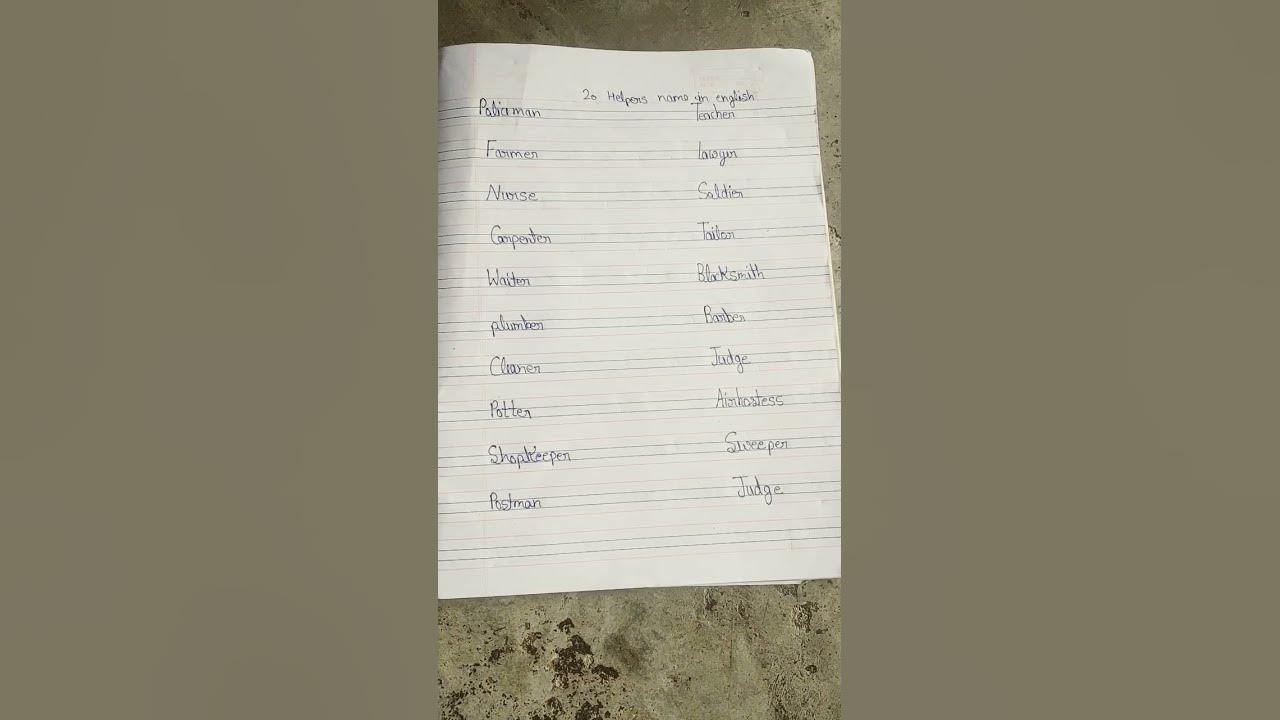 20 Helpers name in english
Policeman Teacher
Farmer Lawyer
Nurse Soldier
Carpenter Tailor
Waiter Blacksmith
plumber Barber
Cleaner Judge
Potter Airhostess
Shopkeeper Sweeper
Postman Judge